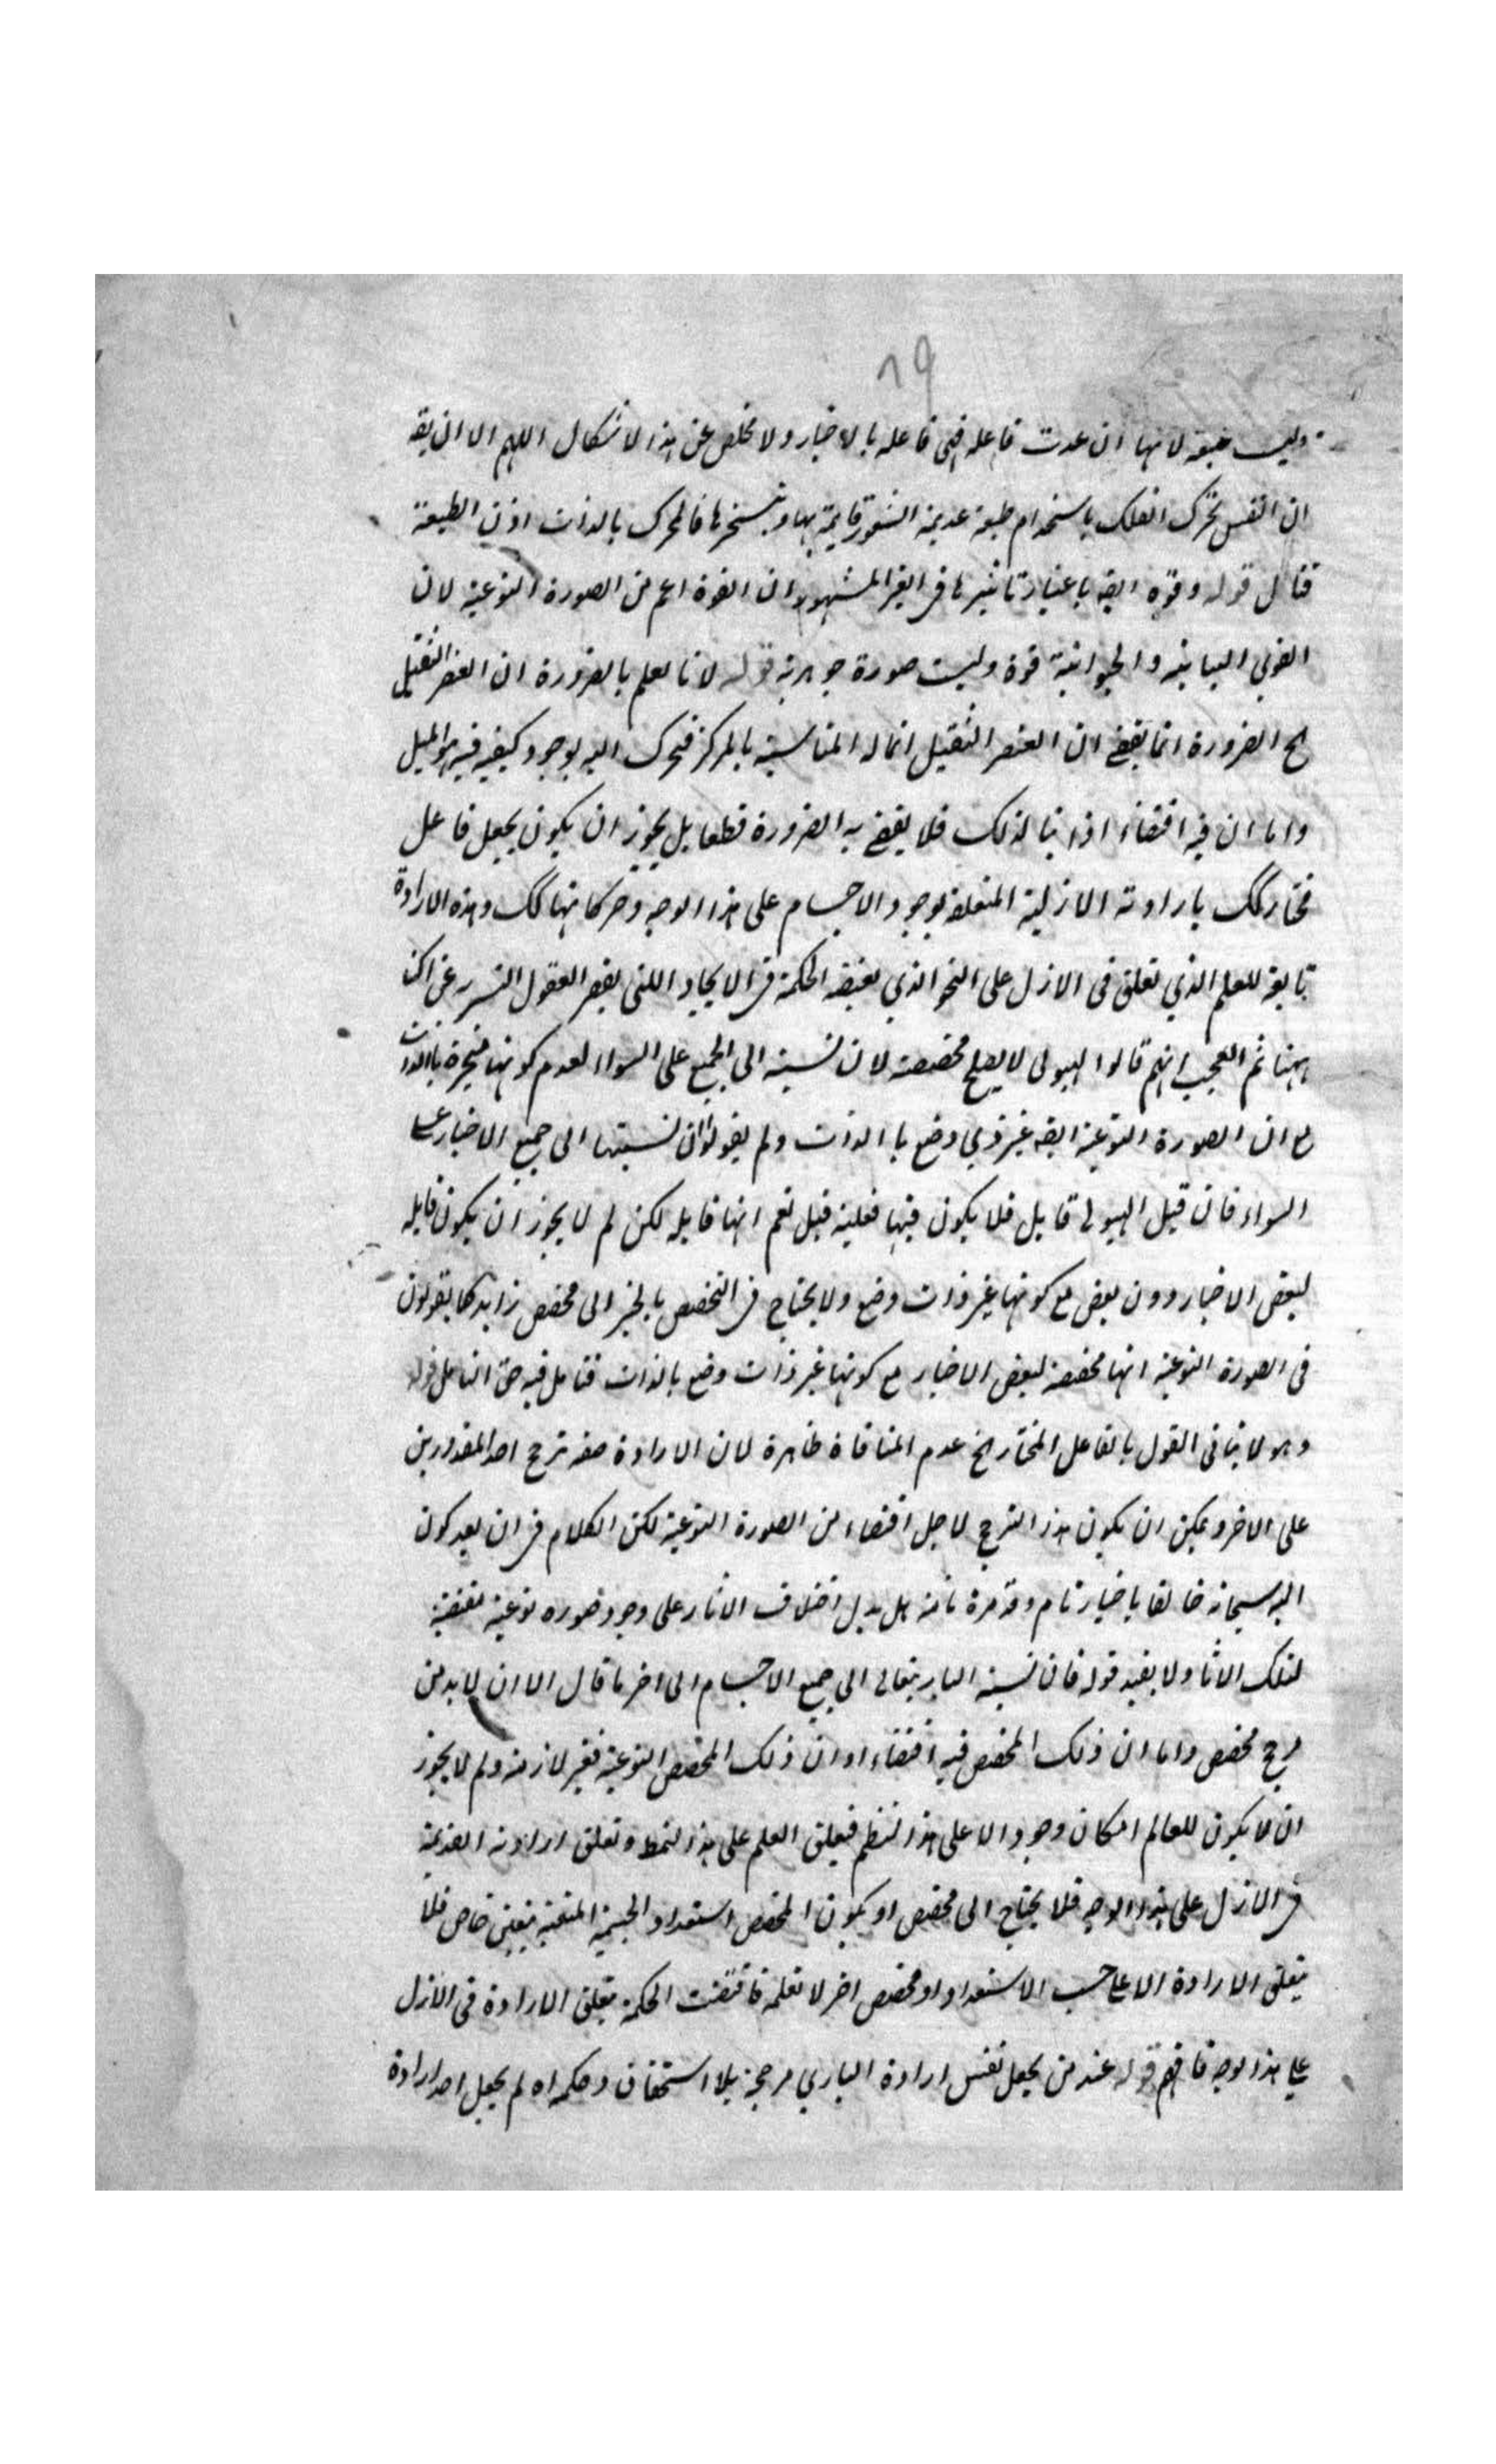 ١٩
وليست طبيعة لانها ان عدت فاعله فهى فاعله بالاختيار ولا مخلص عن هذا الاشكال اللهم الا ان يقه
ان النفس تحرك الفلك باستخدام طبيعة عديمة الشعور قايمة بها وتسخرها فالمحرك بالذات اذن الطبيعة
فتامل قوله وقوة ايضه باعتبار تاثيرها فى الغير المشهور ان القوة اعم من الصورة النوعية لان
القوى النباتية والحيوانية قوة وليست صورة جوهرية قوله لانا نعلم بالضرورة ان العنصر الثقيل
اﻟﺦ الضرورة انما يقضى ان العنصر الثقيل انما له المناسبة بالمركز فتحرك اليه بوجود كيفية فيه هو الميل
واما ان فيه اقتضاء ذاتيا لذلك فلا يقضى به الضرورة قطعا بل يجوز ان يكون بجعل فاعل
مختار كك بارادته الازلية المتعلقة بوجود الاجسام على هذا الوجه وحركاتها كك وهذه الارادة
تابعة للعلم الذي تعلق فى الازل على النحو الذي تقتضيه الحكمة فى الايجاد اللتى يقصر العقول البشرية عن
ههنا ثم العجب انهم قالوا الهيولى لا يصلح مخصصة لان نسبته الى الجميع على السواء لعدم كونها متحيزة بالذات
مع ان الصورة النوعية ايضه غير ذي وضع بالذات ولم يقولوا ان نسبتها الى جميع الاحياز على
السواء فان قيل الهيولى قابل فلا يكون فيها فعلية قيل نعم انها قابله لكن لم لا يجوز ان يكون قابله
لبعض الاحياز دون بعض مع كونها غير ذات وضع ولا يحتاج فى التخصص بالحيز الى مخصص زايد كما يقولون
فى الصورة النوعية انها مخصصة لبعض الاحياز مع كونها غير ذات وضع بالذات فتامل فيه حق التامل قوله
وهو لا ينافى القول بالفاعل المختار اﻟﺦ عدم المنافاة ظاهرة لان الارادة صفه ترجح احد المقدورين
على الاخر ويمكن ان يكون هذا الترجح لاجل اقتضاء من الصورة النوعية لكن الكلام فى ان بعد كون
البه سبحانه خالقا باختيار تام وقدرة تامة هل يدل اختلاف الاثار على وجود صوره نوعية مقتضية
لتلك الاثار ولا يفيد قوله فان نسبة الباري تعالى الى جميع الاجسام الى اخر ما قال الا ان لا بد من
مرجح مخصص واما ان ذلك المخصص فيه اقتضاء او ان ذلك المخصص النوعية فغير لازمة ولم لا يجوز
ان لا يكون للعالم امكان وجود الا على هذا النظم فيعلق العلم على هذا النمط وتعلق ارادته القديمة
فى الازل على هذا الوجه فلا يحتاج الى مخصص او يكون المخصص استعداد الجسمية المتعينة بتعين خاص فلا
يتعلق الارادة الا على حسب الاستعداد او مخصص اخر لا نعلمه فاقتضت الحكمة تعلق الارادة فى الازل
على هذا الوجه فافهم قوله عند من يجعل نفس ارادة الباري مرجحة بلا استحقاق وحكمة اه لم يجعل احد ارادة